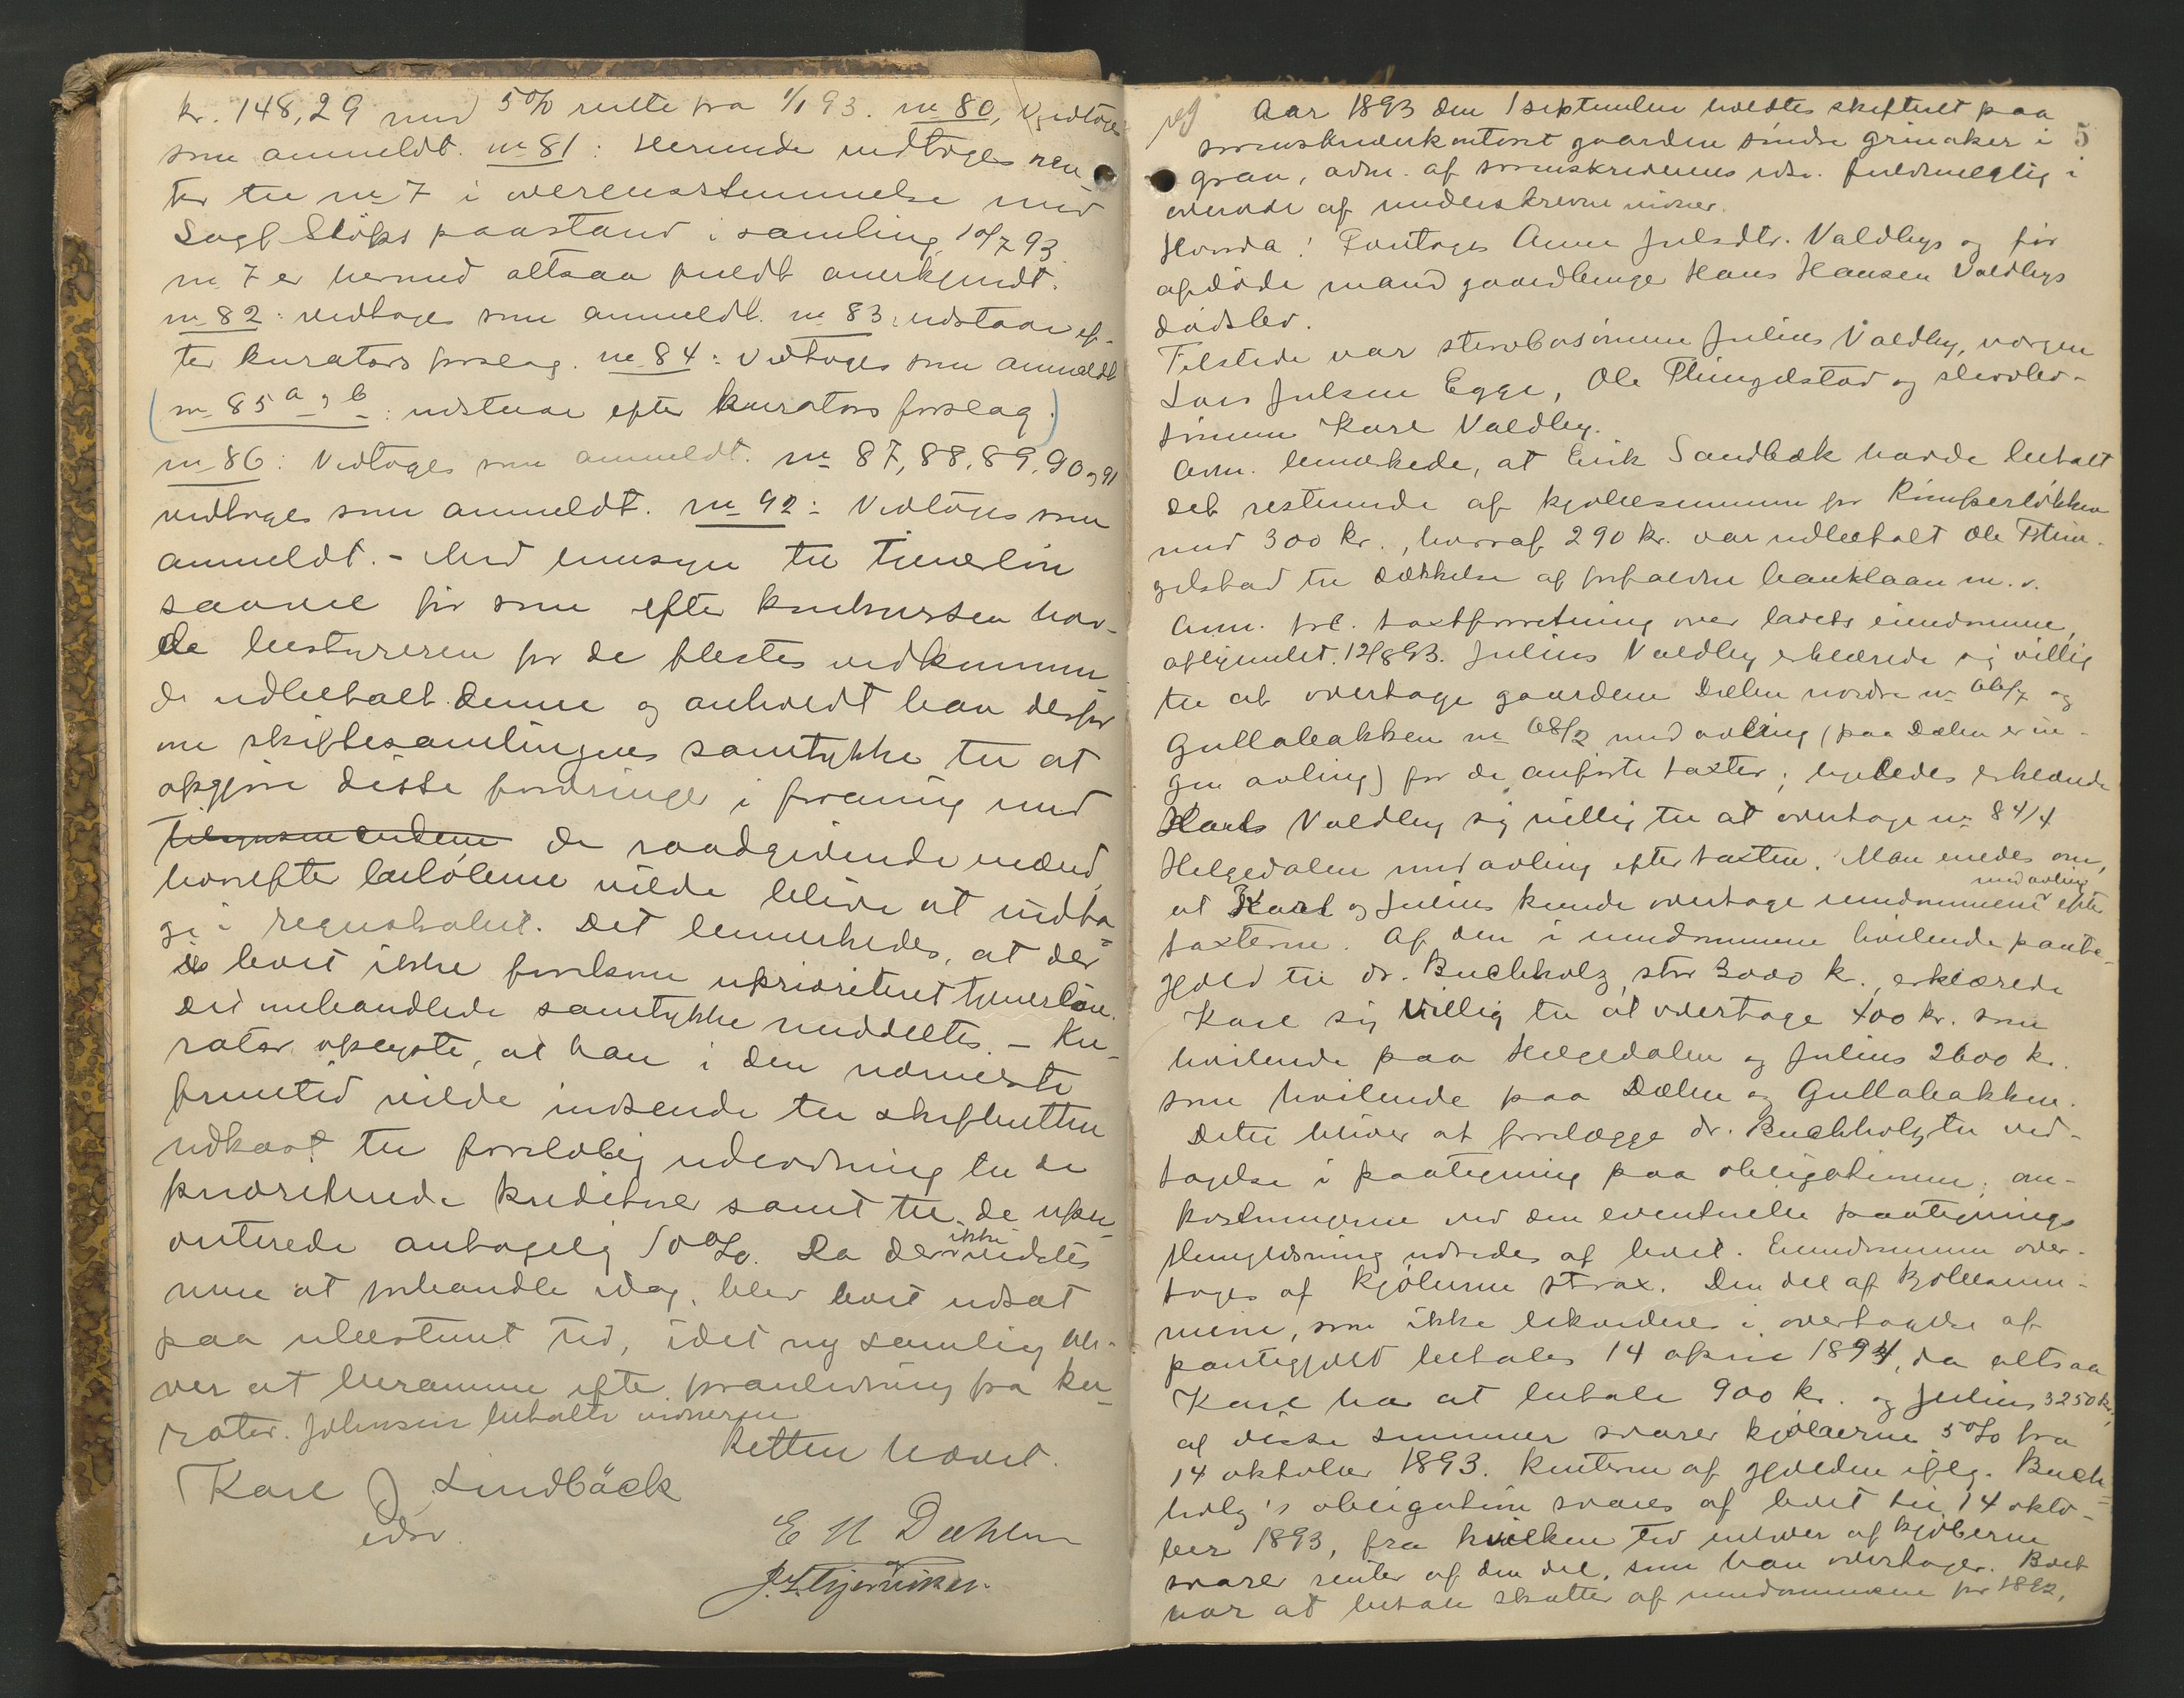 kr. 148,29 med 5% rente fra 1/1 93. no 80, Vedtoges
som anmeldt. no 81: Herunder vedtoges ren-
ter til no 7 i overensstemmelse med
Sagf. Stöps paastand i samling 10/7 93.
no 7 er hermed altsaa fuldt anerkjendt.
no 82: vedtoges som anmeldt. no 83: udstaar ef-
ter kurators forslag. no 84: Vedtoges som anmeldt
(no 85 a og b: udstaar efter kurators forslag.)
no 86: Vedtoges som anmeldt. no 87, 88, 89, 90 og 91
vedtoges som anmeldt. no 92: Vedtoges som
anmeldt. - Med hensyn til tjenerløn
saavel før som efter konkursen hav-
de bestyreren for de flestes vedkommen
de udbetalt denne og anholdt han derfor
om skiftesamlingens samtykke til at
opgjøre disse fordringer i forening med
tilsynsmændene de raadgivende mænd,
hvorefter beløbene vilde blive at indta-
ge i regnskabet. Det bemærkedes, at der
i boet ikke forekom uprioriteret tjenerløn.
Det omhandlede samtykke meddeltes. - Ku-
rator oplyste, at han i den nærmeste
fremtid vilde indsende til skifteretten
udkast til foreløbig udlodning til de
prioriterede kreditorer samt til de upri-
oriterede antagelig 10%. Da der ikke vidstes
mere at forhandle idag, blev boet udsat
paa ubestemt tid, idet ny samling bli-
ver at beramme efter foranledning fra ku-
rator. Johnsen betalte vidnerne
Retten hævet.
Karl J. Lindbäck
edsv.
E N Dæhlen
5
Aar 1893 den 1 september holdtes skifteret paa
sorenskriverkontoret gaarden søndre Grinaker i
Gran, adm. af sorenskriverens edsv. fuldmægtig i
overvær af underskrevne vidner.
Hvorda: Foretoges Anne Julsdtr. Valdbys og før
afdøde mand gaardbruger Hans Hansen Valdbys
dødsbo.
Tilstede var sterbosønnen Julius Valdby, vergen
Lars Julsen Egge, Ole Thingelstad og sterbo-
sønnen Karl Valdby.
Adm. bemerkede, at Erik Sandbæk havde betalt
det resterende af kjøbesummen for Rimperløkken
med 300 kr., hvoraf 290 kr. var udbetalt Ole Thin-
gelstad til dækkelse af forfaldne banklaan m. v.
Adm. frl. taxtforretning over boets eiendomme,
afhjemlet 12/8 93. Julius Valdby erklærede sig villig
til at overtage gaardene Dælen nordre no 66/7 og
Gullabakken no 68/2 med avling (paa Dælen er in-
gen avling) for de anførte taxter; ligeledes erklærede
Karl Valdby sig villig til at overtage no 84/4
Helgedalen med avling efter taxten. Man enedes om,
at Karl og Julius kunde overtage eiendommene med avling efter
taxterne. Af den i eiendommene hvilende pante-
gjæld til dr. Buchholz, stor 3000 k., erklærede
Karl sig villig til at overtage 400 kr. som
hvilende paa Helgedalen og Julius 2600 k.
som hvilende paa Dælen og Gullabakken.
Dette bliver at forelægge dr. Buchholz til ved-
tagelse i paategning paa obligationen; om-
kostningerne ved den eventuelle paategnings
thinglæsning udredes af boet. Eiendommene over-
tages af kjøberne strax. Den del af kjøbesum-
mene, som ikke likvideres i overtagelse af
pantegjæld betales 14 april 1894, da altsaa
Karl har at betale 900 kr. og Julius 3250 kr.;
af disse summer svarer kjøberne 5% fra
14 oktober 1893. Renterne af gjælden iflg. Buch-
holz's obligation svares af boet til 14 okto-
ber 1893, fra hvilken tid enhver af kjøberne
svarer renter af den del, som han overtager. Boet
har at betale skatter af eiendommene for 1892,